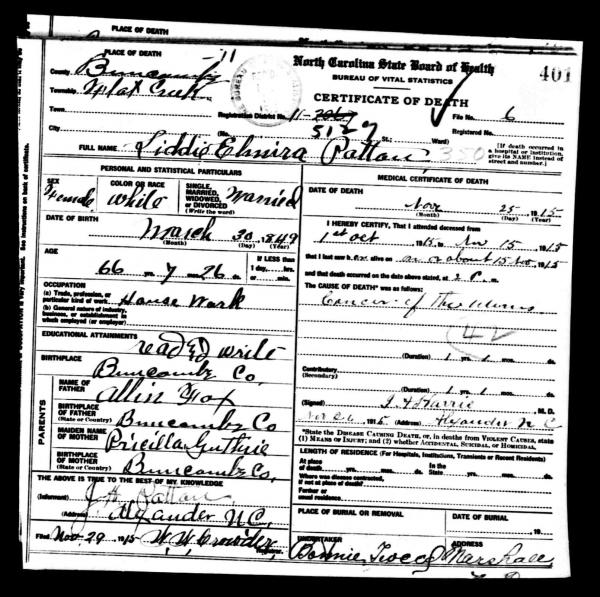 PLACE OF DEATH
PLACE OF DEATH
County Buncombe
Township Flat Creek
Town
City
11
North Carolina State Board of Health
BUREAU OF VITAL STATISTICS
401
CERTIFICATE OF DEATH
Registration District No. 11-
5127
File No. 6
Registered No.
(No. St.: Ward)
[If death occurred in a hospital or institution, give its NAME instead of street and number.]
350
FULL NAME Liddie Elmira Patton
PERSONAL AND STATISTICAL PARTICULARS
SEX Female
COLOR OR RACE White
SINGLE, MARRIED, WIDOWED, OR DIVORCED (Write the word) Married
DATE OF BIRTH
March 30, 1849
(Month) (Day) (Year)
AGE
66 yrs. 7 mos. 26 ds.
IF LESS than 1 day, hrs. or min.
OCCUPATION
(a) Trade, profession, or particular kind of work House Work
(b) General nature of industry, business, or establishment in which employed (or employer)
EDUCATIONAL ATTAINMENTS
read & write
BIRTHPLACE
Buncombe Co,
PARENTS
NAME OF FATHER Allin Fox
BIRTHPLACE OF FATHER (State or Country) Buncombe Co
MAIDEN NAME OF MOTHER Pricilla Guthrie
BIRTHPLACE OF MOTHER (State or Country) Buncombe Co,
THE ABOVE IS TRUE TO THE BEST OF MY KNOWLEDGE
(Informant) Patton
(Address) Alexander N.C.
Filed Nov. 29 1915
Registrar.
MEDICAL CERTIFICATE OF DEATH
DATE OF DEATH
Nov 25 1915
(Month) (Day) (Year)
I HEREBY CERTIFY, That I attended deceased from
1st Oct 1915 to Nov 15 1915
that I last saw h er alive on on or about 15 Nov 1915
and that death occurred on the date above stated, at 2 P. m.
The CAUSE OF DEATH* was as follows:
Cancer of the Uterus
42
(Duration) 1 yrs. 1 mos. ds.
Contributory
(Secondary)
(Duration) 1 yrs. 1 mos. ds.
(Signed) M.D.
Nov 26 1915 (Address) Alexander N C
*State the DISEASE CAUSING DEATH, or, in deaths from VIOLENT CAUSES, state (1) MEANS OF INJURY; and (2) whether ACCIDENTAL, SUICIDAL, or HOMICIDAL.
LENGTH OF RESIDENCE (For Hospitals, Institutions, Transients or Recent Residents)
At place of death yrs. mos. ds. In the State yrs. mos. ds.
Where was disease contracted, if not at place of death?
Former or usual residence
PLACE OF BURIAL OR REMOVAL
DATE OF BURIAL
19
UNDERTAKER
ADDRESS
Marshall